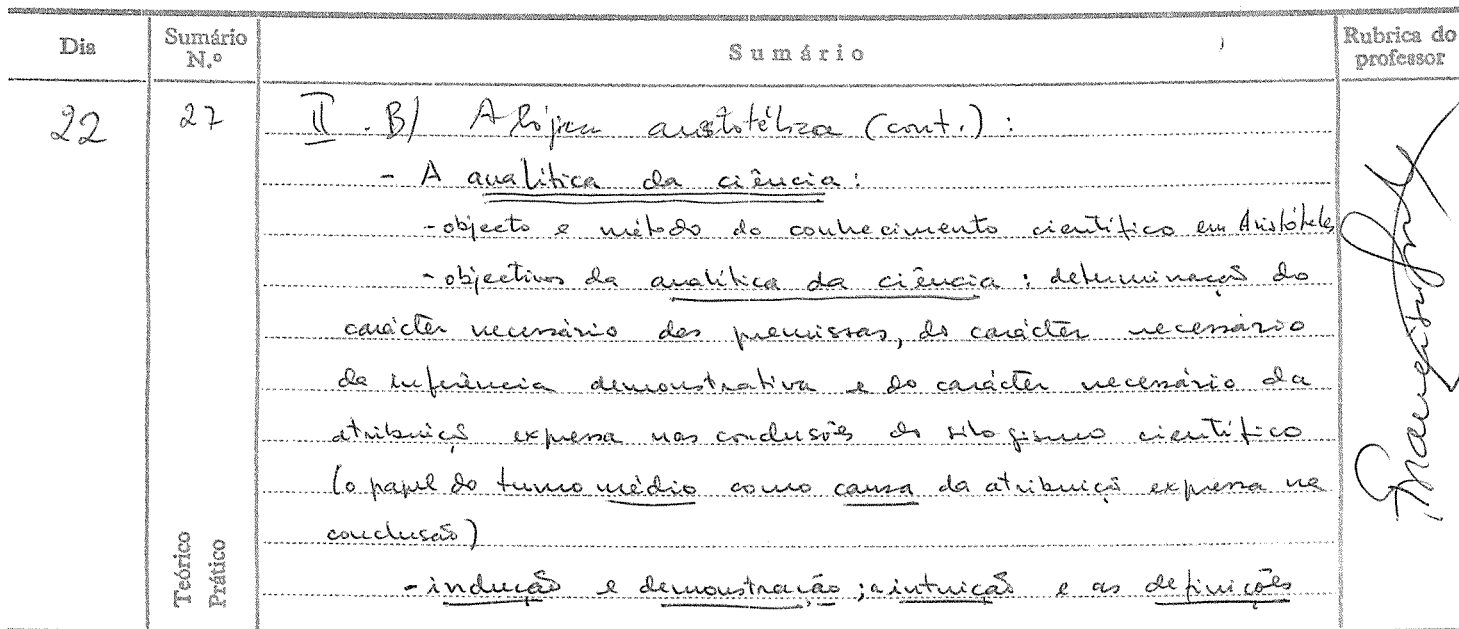 Dia
Sumário N.º
Sumário
Rubrica do professor
22
27
II . B/ A lógica aristotélica (cont.) :
- A analítica da ciência :
- objecto e método do conhecimento científico em Aristóteles
- objectivos da analítica da ciência : determinação do
carácter necessário das premissas, do carácter necessário
da inferência demonstrativa e do carácter necessário da
atribuição expressa nas conclusões do silogismo científico
(o papel do termo médio como causa da atribuição expressa na
conclusão)
- indução e demonstração ; a intuição e as definições
Teórico
Prático